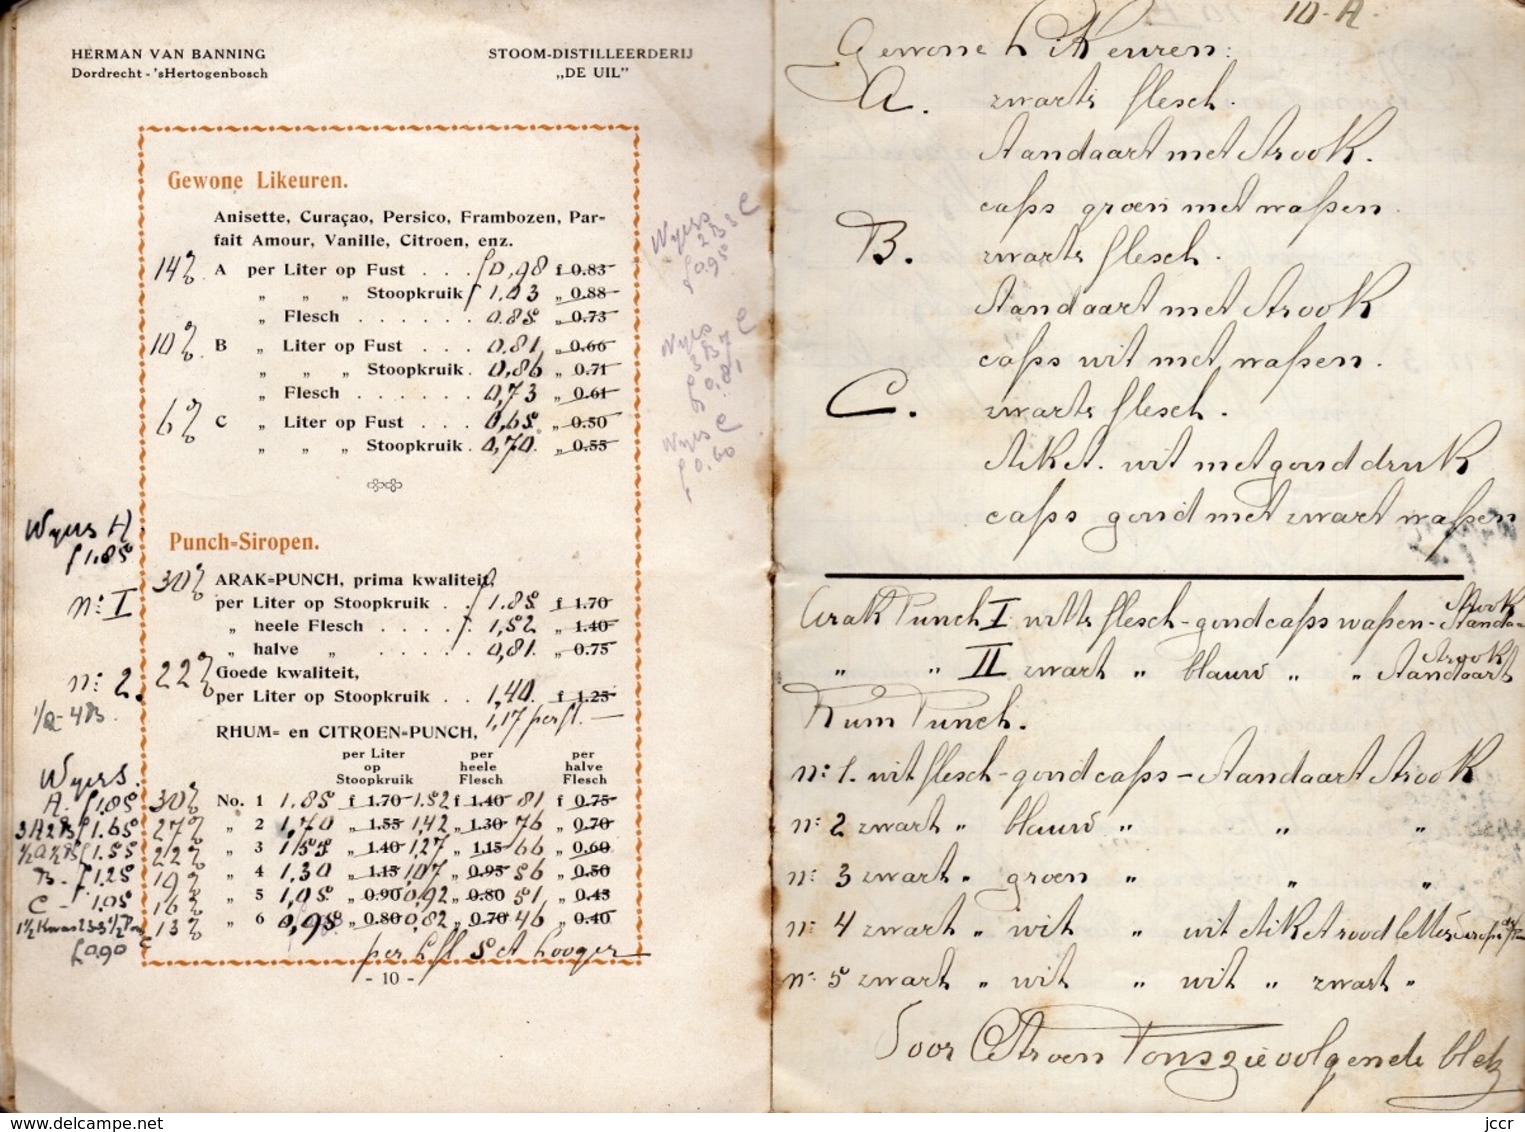 HERMAN VAN BANNING
Dordrecht - 'sHertogenbosch
STOOM-DISTILLEERDERIJ
„DE UIL"
Gewone Likeuren.
Anisette, Curaçao, Persico, Frambozen, Par-
fait Amour, Vanille, Citroen, enz.
14% A per Liter op Fust . . . f 0,98 f 0.83
„ „ „ Stoopkruik f 1.03 „ 0.88
„ Flesch . . . . . . 0.85 „ 0.73
10% B „ Liter op Fust . . . 0.81 „ 0.66
„ „ „ Stoopkruik . 0,86 „ 0.71
„ Flesch . . . . . . 0,73 „ 0.61
6% C „ Liter op Fust . . . 0,65 „ 0.50
„ „ „ Stoopkruik . 0,70 „ 0.55
Wyers
2 B 3 C
f 0.95
Wyers
3 B 7 C
f 0.81
Wyers C
f 0.60
Punch-Siropen.
Wyers A
f 1.85
30% ARAK-PUNCH, prima kwaliteit,
n: I per Liter op Stoopkruik . . f 1.85 f 1.70
„ heele Flesch . . . . f. 1,52 „ 1.40
„ halve „ . . . . . 0,81 „ 0.75
n: 2. 22% Goede kwaliteit,
per Liter op Stoopkruik . . 1,40 f 1.25
1,17 per fl. —
RHUM- en CITROEN-PUNCH,
per Liter op Stoopkruik
per heele Flesch
per halve Flesch
Wyers.
A. f 1.85 30% No. 1 1.85 f 1.70 1.52 f 1.40 81 f 0.75
f 1.65 27% „ 2 1,70 „ 1.55 1,42 „ 1.30 76 „ 0.70
f 1.55 22% „ 3 1,55 „ 1.40 1,27 „ 1.15 66 „ 0.60
B - f 1.25 19% „ 4 1.30 „ 1.15 1,07 „ 0.95 56 „ 0.50
C - 1.05 16% „ 5 1,05 „ 0.90 0,92 „ 0.80 51 „ 0.45
13% „ 6 0,95 „ 0.80 0,82 „ 0.70 46 „ 0.40
f 0.90
per hfl 5 ct hooger
- 10 -
10-A.
Gewone Likeuren:
A. zwarte flesch.
Standaart met Strook.
caps groen met wapen.
B. zwarte flesch.
Standaart met Strook
caps wit met wapen.
C. zwarte flesch.
Etiket. wit met goud druk
caps goud met zwart wapen
Arak Punch I witte flesch - goud caps wapen - Strook Standaart
„ „ II zwart „ blauw „ „ Strook Standaart
Rum Punch.
n: 1. wit flesch - goud caps - Standaart Strook
n: 2 zwart „ blauw „ „ „
n: 3 zwart „ groen „ „ „
n: 4 zwart „ wit „ wit etiket rood letter
n: 5 zwart „ wit „ wit „ zwart „
Voor Citroen Pons zie volgende bladz
jccr